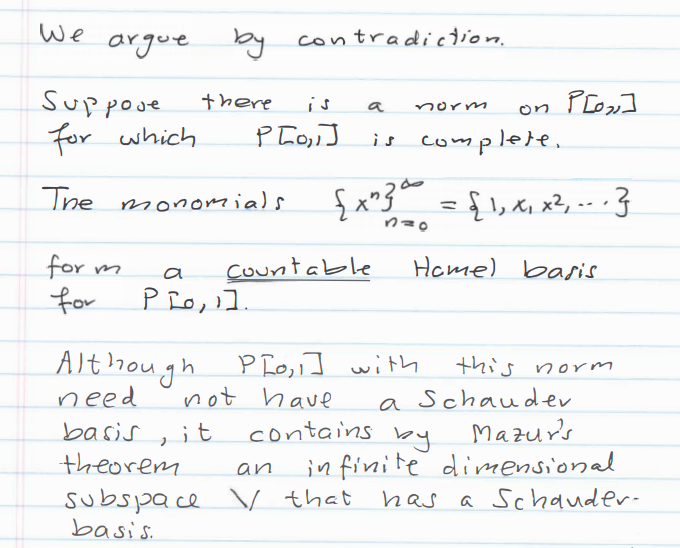 We argue by contradiction.
Suppose there is a norm on P[0,1]
for which P[0,1] is complete.
The monomials {xⁿ}_{n=0}^∞ = {1, x, x², ...}
form a countable Hamel basis
for P[0,1].
Although P[0,1] with this norm
need not have a Schauder
basis, it contains by Mazur's
theorem an infinite dimensional
subspace V that has a Schauder-
basis.